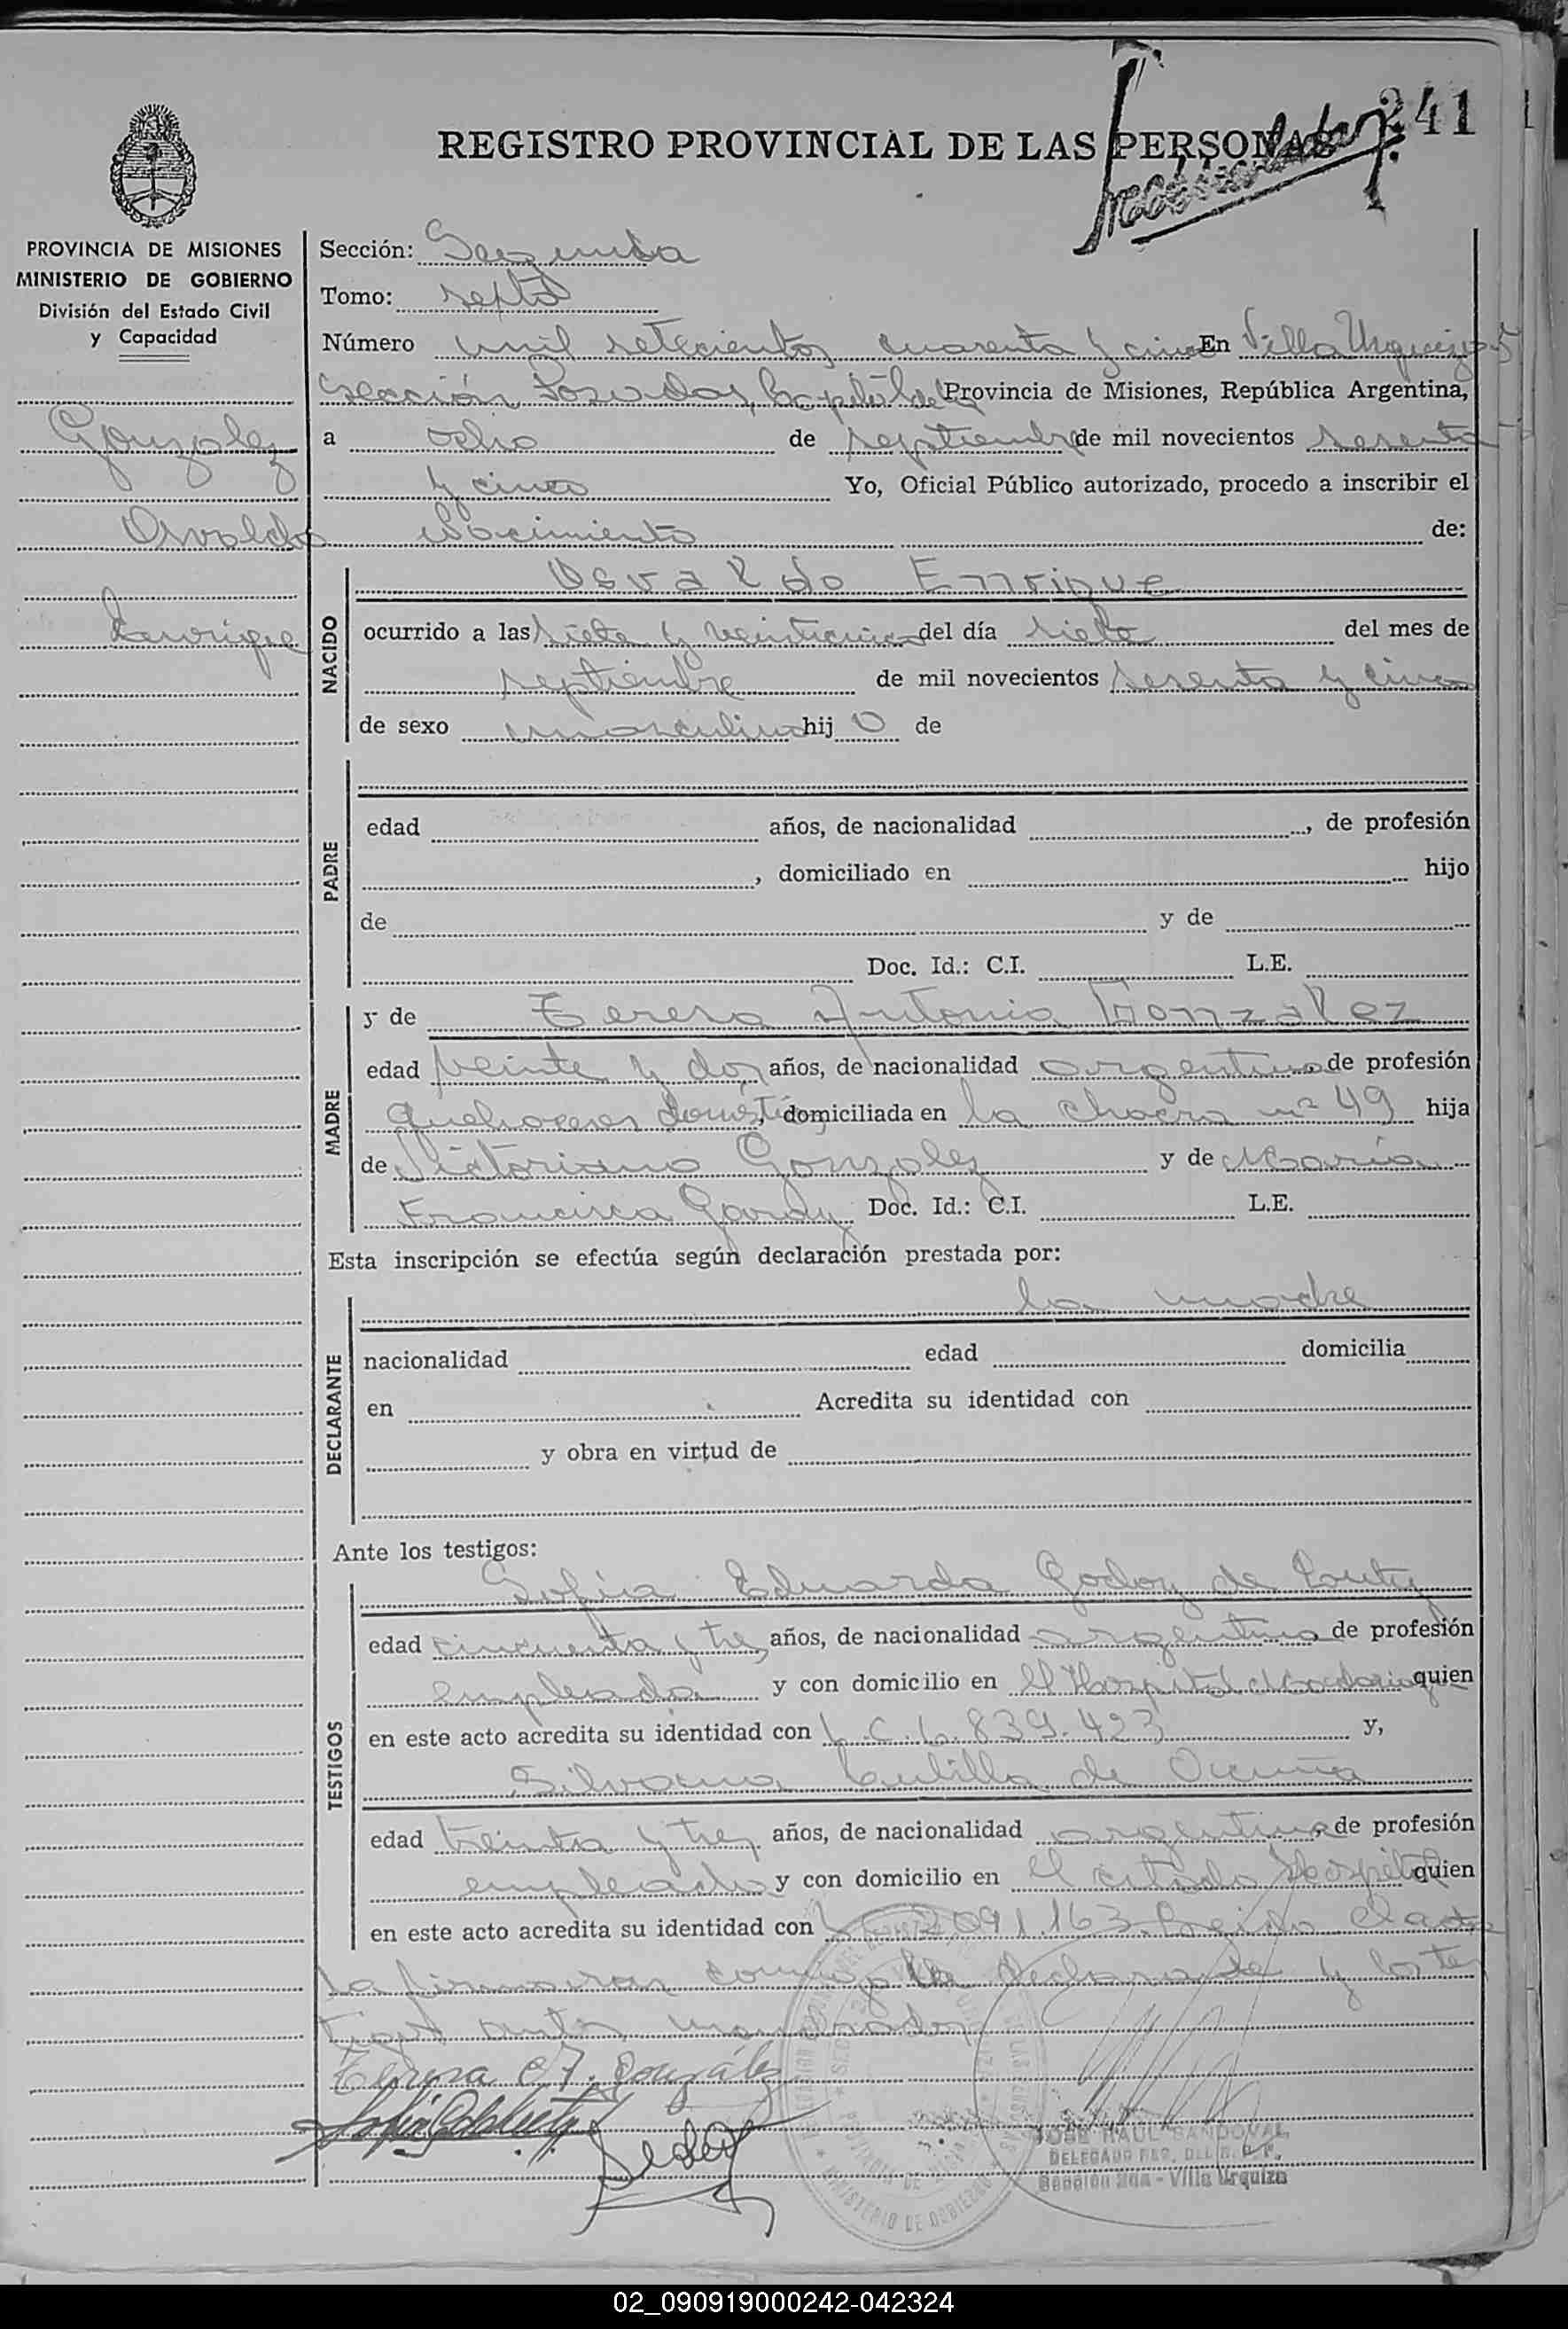 241
REGISTRO PROVINCIAL DE LAS PERSONAS
PROVINCIA DE MISIONES
MINISTERIO DE GOBIERNO
División del Estado Civil
y Capacidad
Gonzalez
Osvaldo
Enrique
Sección: Segunda
Tomo: septo
Número mil setecientos cuarenta y cinco En Villa Urquiza
sección Posadas, Capital de la Provincia de Misiones, República Argentina,
a ocho de septiembre de mil novecientos sesenta
y cinco Yo, Oficial Público autorizado, procedo a inscribir el
Nacimiento de:
NACIDO
Osvaldo Enrique
ocurrido a las siete y veinticinco del día siete del mes de
septiembre de mil novecientos sesenta y cinco
de sexo masculino hijo de
PADRE
edad años, de nacionalidad , de profesión
, domiciliado en hijo
de y de
Doc. Id.: C.I. L.E.
MADRE
y de Teresa Antonia Gonzalez
edad veinte y dos años, de nacionalidad argentina de profesión
quehaceres domésticos, domiciliada en la chacra nº 49 hija
de Victoriano Gonzalez y de María
Francisca Doc. Id.: C.I. L.E.
Esta inscripción se efectúa según declaración prestada por:
DECLARANTE
la madre
nacionalidad edad domicilia
en Acredita su identidad con
y obra en virtud de
Ante los testigos:
TESTIGOS
Sofia Eduarda Godoy de
edad cincuenta y tres años, de nacionalidad argentina de profesión
empleada y con domicilio en el Hospital Madariaga quien
en este acto acredita su identidad con L.C. 6.839.423 y,
Silvana de Ocuña
edad treinta y tres años, de nacionalidad argentina, de profesión
empleada y con domicilio en el citado Hospital quien
en este acto acredita su identidad con 2091.163. Leida el acta
la firmaron conmigo la declarante y los tes
tigos antes nombrados
Teresa A. González
JOSE RAUL SANDOVAL
DELEGADO REG.
Sección 2da - Villa Urquiza
MINISTERIO DE GOBIERNO
02_090919000242-042324